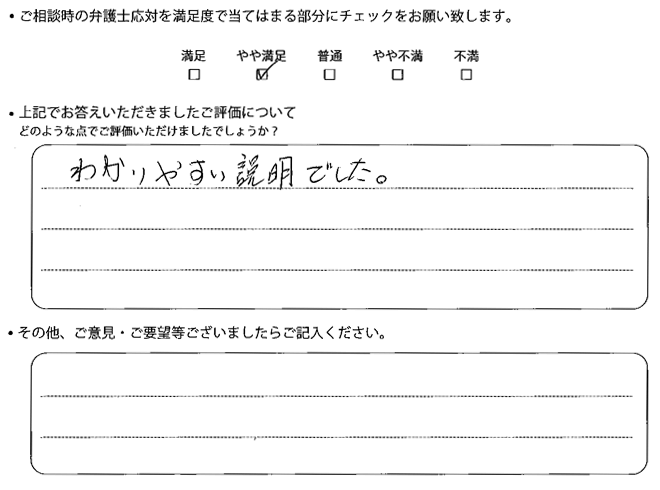 • ご相談時の弁護士応対を満足度で当てはまる部分にチェックをお願い致します。
満足 やや満足 普通 やや不満 不満
□ ☑ □ □ □
• 上記でお答えいただきましたご評価について
どのような点でご評価いただけましたでしょうか？
わかりやすい説明でした。
• その他、ご意見・ご要望等ございましたらご記入ください。